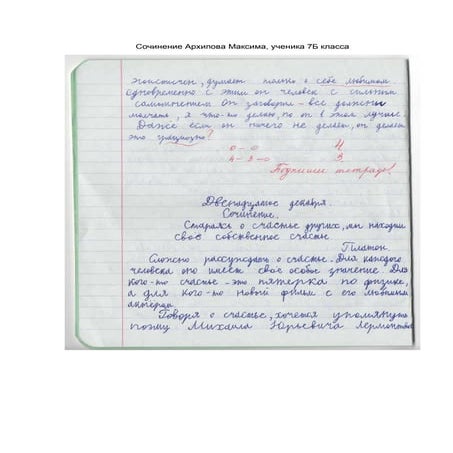 Сочинение Архипова Максима, ученика 7Б класса
эгоистичен, думает только о себе любимом.
Одновременно с этим он человек с сильным
самомнением. Он заговорил – все должны
молчать, я что-то делаю, но от в этом лучше.
Даже если он ничего не делает, он делает
это грациозно!
0 – 0 4
4 – 3 – 0 3
Подпиши тетрадь!
Двенадцатое декабря.
Сочинение.
Стараясь о счастье других, мы находим
своё собственное счастье.
Платон.
Сложно рассуждать о счастье. Для каждого
человека оно имеет своё особое значение. Для
кого-то счастье – это пятёрка по физике,
а для кого-то новый фильм с его любимым
актёром.
Говоря о счастье, хочется упомянуть
поэму Михаила Юрьевича Лермонтова